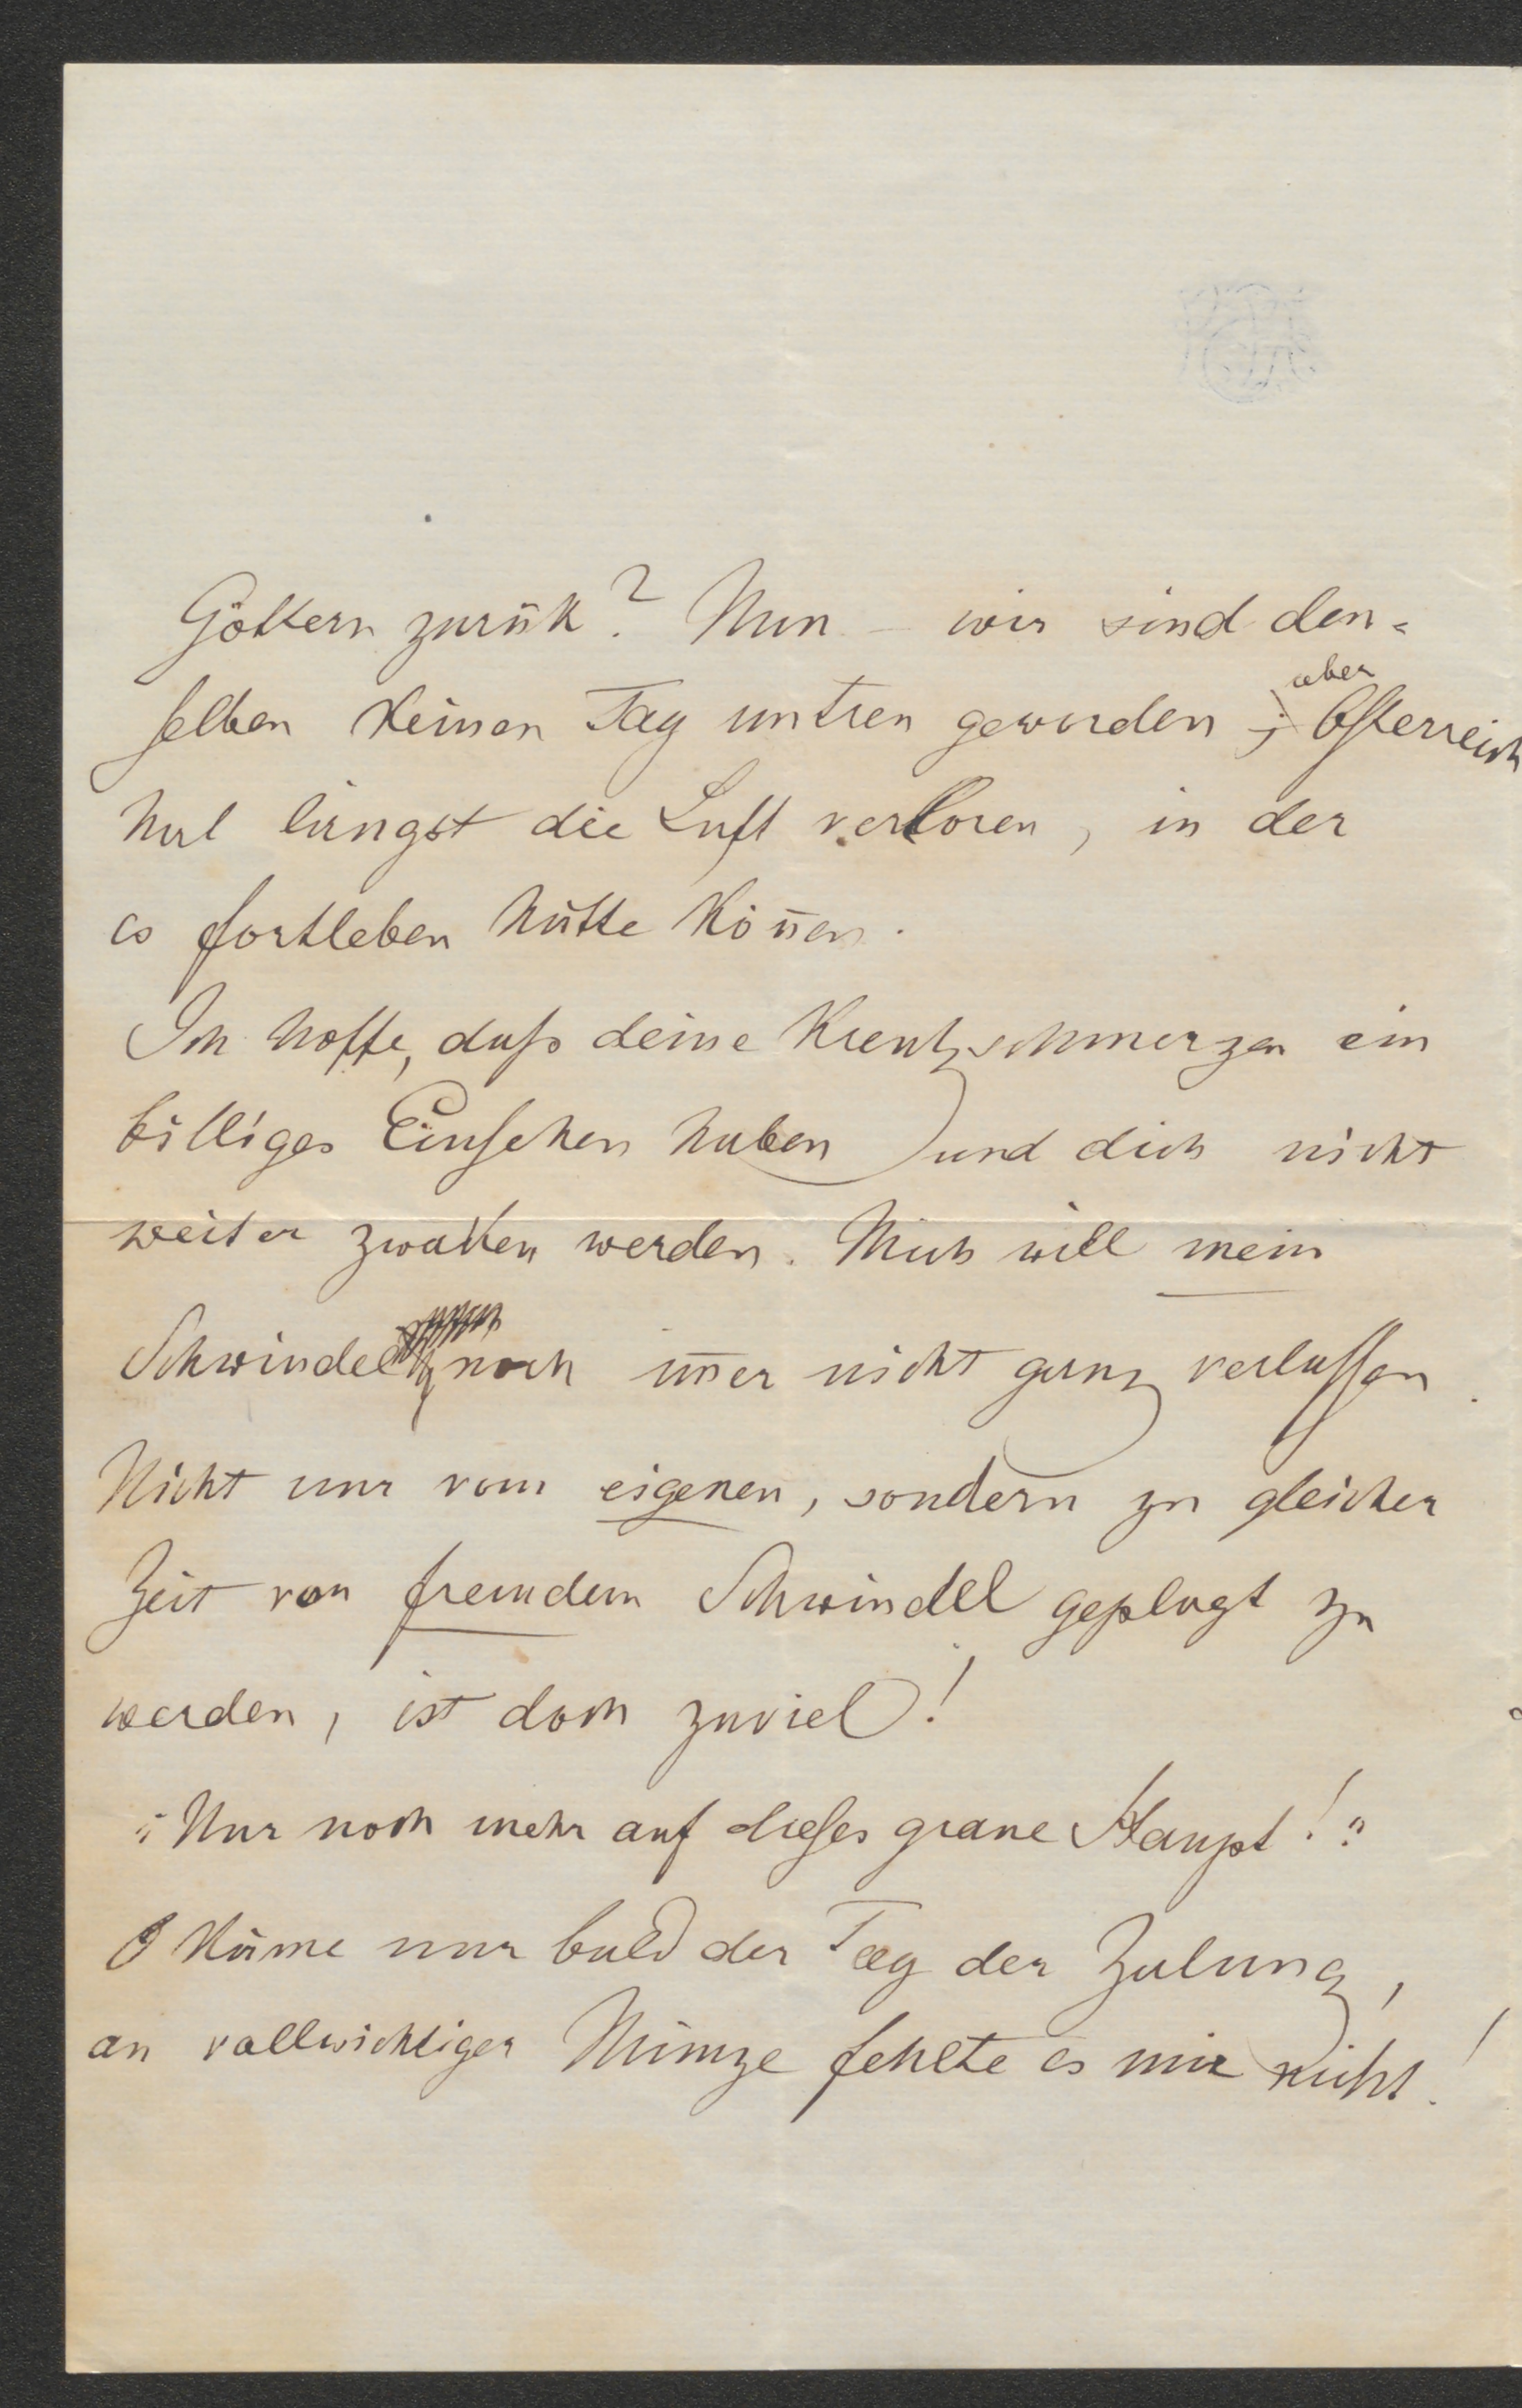 Göttern zurük? Nun – wir sind den-
selben keinen Tag untreu geworden; aber Östereich
hat längst die Luft verloren, in der
es fortleben hätte köñen.
Ich hoffe, daß deine Kreutzschmerzen ein
billiges Einsehen haben und dich nicht
weiter zwaken werden. Mich will mein
Schwindel noch im̃er nicht ganz verlassen.
Nicht nur vom eigenen, sondern zu gleicher
Zeit von fremdem Schwindel geplagt zu
werden, ist doch zuviel!
"Nur noch mehr auf dieses graue Haupt!"
O käme nur bald der Tag der Zalung,
an vollwichtiger Münze fehlte es mir nicht!